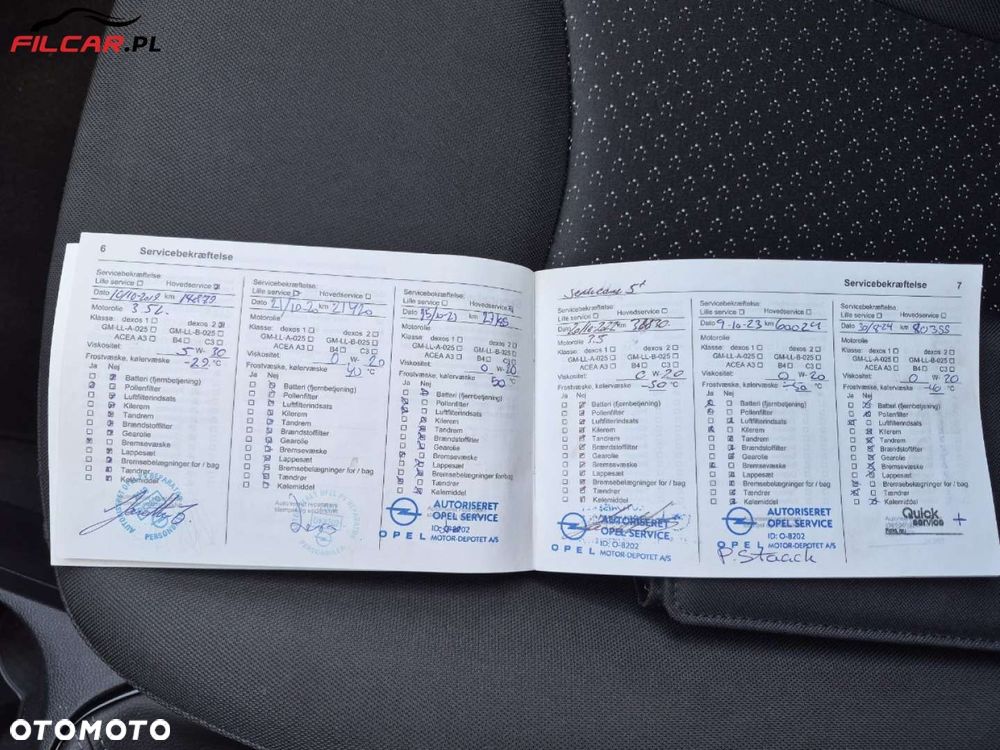 FILCAR.PL
6 Servicebekræftelse
Servicebekræftelse:
Lille service Hovedservice
Dato 10/10-2019 km 14879
Motorolie 3.5L.
Klasse: dexos 1 dexos 2
GM-LL-A-025 GM-LL-B-025
ACEA A3 B4 C3
Viskositet: 5 W- 30
Frostvæske, kølervæske -29 °C
Ja Nej
Batteri (fjernbetjening)
Pollenfilter
Luftfilterindsats
Kilerem
Tandrem
Brændstoffilter
Gearolie
Bremsevæske
Lappesæt
Bremsebelægninger for / bag
Tændrør
Kølemiddel
Servicebekræftelse:
Lille service Hovedservice
Dato 21/10-20 km 21420
Motorolie
Klasse: dexos 1 dexos 2
GM-LL-A-025 GM-LL-B-025
ACEA A3 B4 C3
Viskositet: 0 W- 20
Frostvæske, kølervæske 40 °C
Ja Nej
Batteri (fjernbetjening)
Pollenfilter
Luftfilterindsats
Kilerem
Tandrem
Brændstoffilter
Gearolie
Bremsevæske
Lappesæt
Bremsebelægninger for / bag
Tændrør
Kølemiddel
Servicebekræftelse:
Lille service Hovedservice
Dato km
Motorolie
Klasse: dexos 1 dexos 2
GM-LL-A-025 GM-LL-B-025
ACEA A3 B4 C3
Viskositet: 0 W- 20
Frostvæske, kølervæske 50 °C
Ja Nej
Batteri (fjernbetjening)
Pollenfilter
Luftfilterindsats
Kilerem
Tandrem
Brændstoffilter
Gearolie
Bremsevæske
Lappesæt
Bremsebelægninger for/bag
Tændrør
Kølemiddel
AUTORISERET
OPEL SERVICE
ID: O-8202
OPEL MOTOR-DEPOTET A/S
Servicebekræftelse 7
Servicebekræftelse:
Lille service Hovedservice
Dato km
Motorolie 3.5
Klasse: dexos 1 dexos 2
GM-LL-A-025 GM-LL-B-025
ACEA A3 B4 C3
Viskositet: 0 W- 20
Frostvæske, kølervæske -50 °C
Ja Nej
Batteri (fjernbetjening)
Pollenfilter
Luftfilterindsats
Kilerem
Tandrem
Brændstoffilter
Gearolie
Bremsevæske
Lappesæt
Bremsebelægninger for / bag
Tændrør
Kølemiddel
AUTORISERET
OPEL SERVICE
ID: O-8202
OPEL MOTOR-DEPOTET A/S
Servicebekræftelse:
Lille service Hovedservice
Dato 9-10-23 km 60024
Motorolie
Klasse: dexos 1 dexos 2
GM-LL-A-025 GM-LL-B-025
ACEA A3 B4 C3
Viskositet: 0 W- 20
Frostvæske, kølervæske °C
Ja Nej
Batteri (fjernbetjening)
Pollenfilter
Luftfilterindsats
Kilerem
Tandrem
Brændstoffilter
Gearolie
Bremsevæske
Lappesæt
Bremsebelægninger for / bag
Tændrør
Kølemiddel
AUTORISERET
OPEL SERVICE
ID: O-8202
OPEL MOTOR-DEPOTET A/S
P. Staack
Servicebekræftelse:
Lille service Hovedservice
Dato 30/8-24 km 80355
Motorolie
Klasse: dexos 1 dexos 2
GM-LL-A-025 GM-LL-B-025
ACEA A3 B4 C3
Viskositet: 0 W- 20
Frostvæske, kølervæske -40 °C
Ja Nej
Batteri (fjernbetjening)
Pollenfilter
Luftfilterindsats
Kilerem
Tandrem
Brændstoffilter
Gearolie
Bremsevæske
Lappesæt
Bremsebelægninger for / bag
Tændrør
Kølemiddel
Quick
service
OTOMOTO